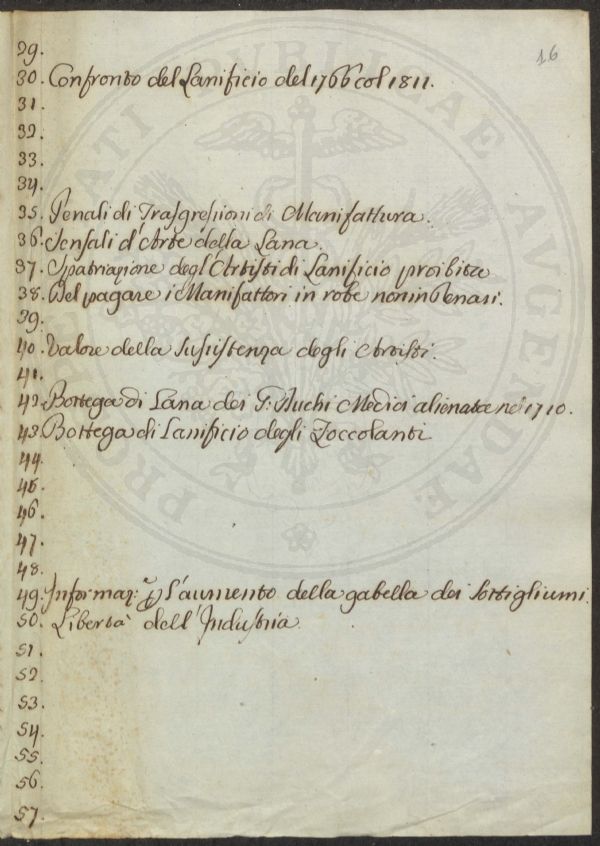 16
29.
30. Confronto del Lanificio del 1766 col 1811.
31.
32.
33.
34.
35. Penali di Trasgressioni di Manifattura.
36. Sensali d'Arte della Lana.
37. Spatriazione degl'Artisti di Lanificio proibita
38. Del pagare i Manifattori in robe non in Denari.
39.
40. Valore della Sussistenza degli Artisti.
41.
42. Bottega di Lana dei G. Duchi Medici alienata nel 1710.
43. Bottega di Lanificio degli Zoccolanti
44.
45.
46.
47.
48.
49. Informaz: p l'aumento della gabella dei Sottigliumi.
50. Libertà dell'Industria
51.
52.
53.
54.
55.
56.
57.
PROSPERITATI PUBLICAE AUGENDAE